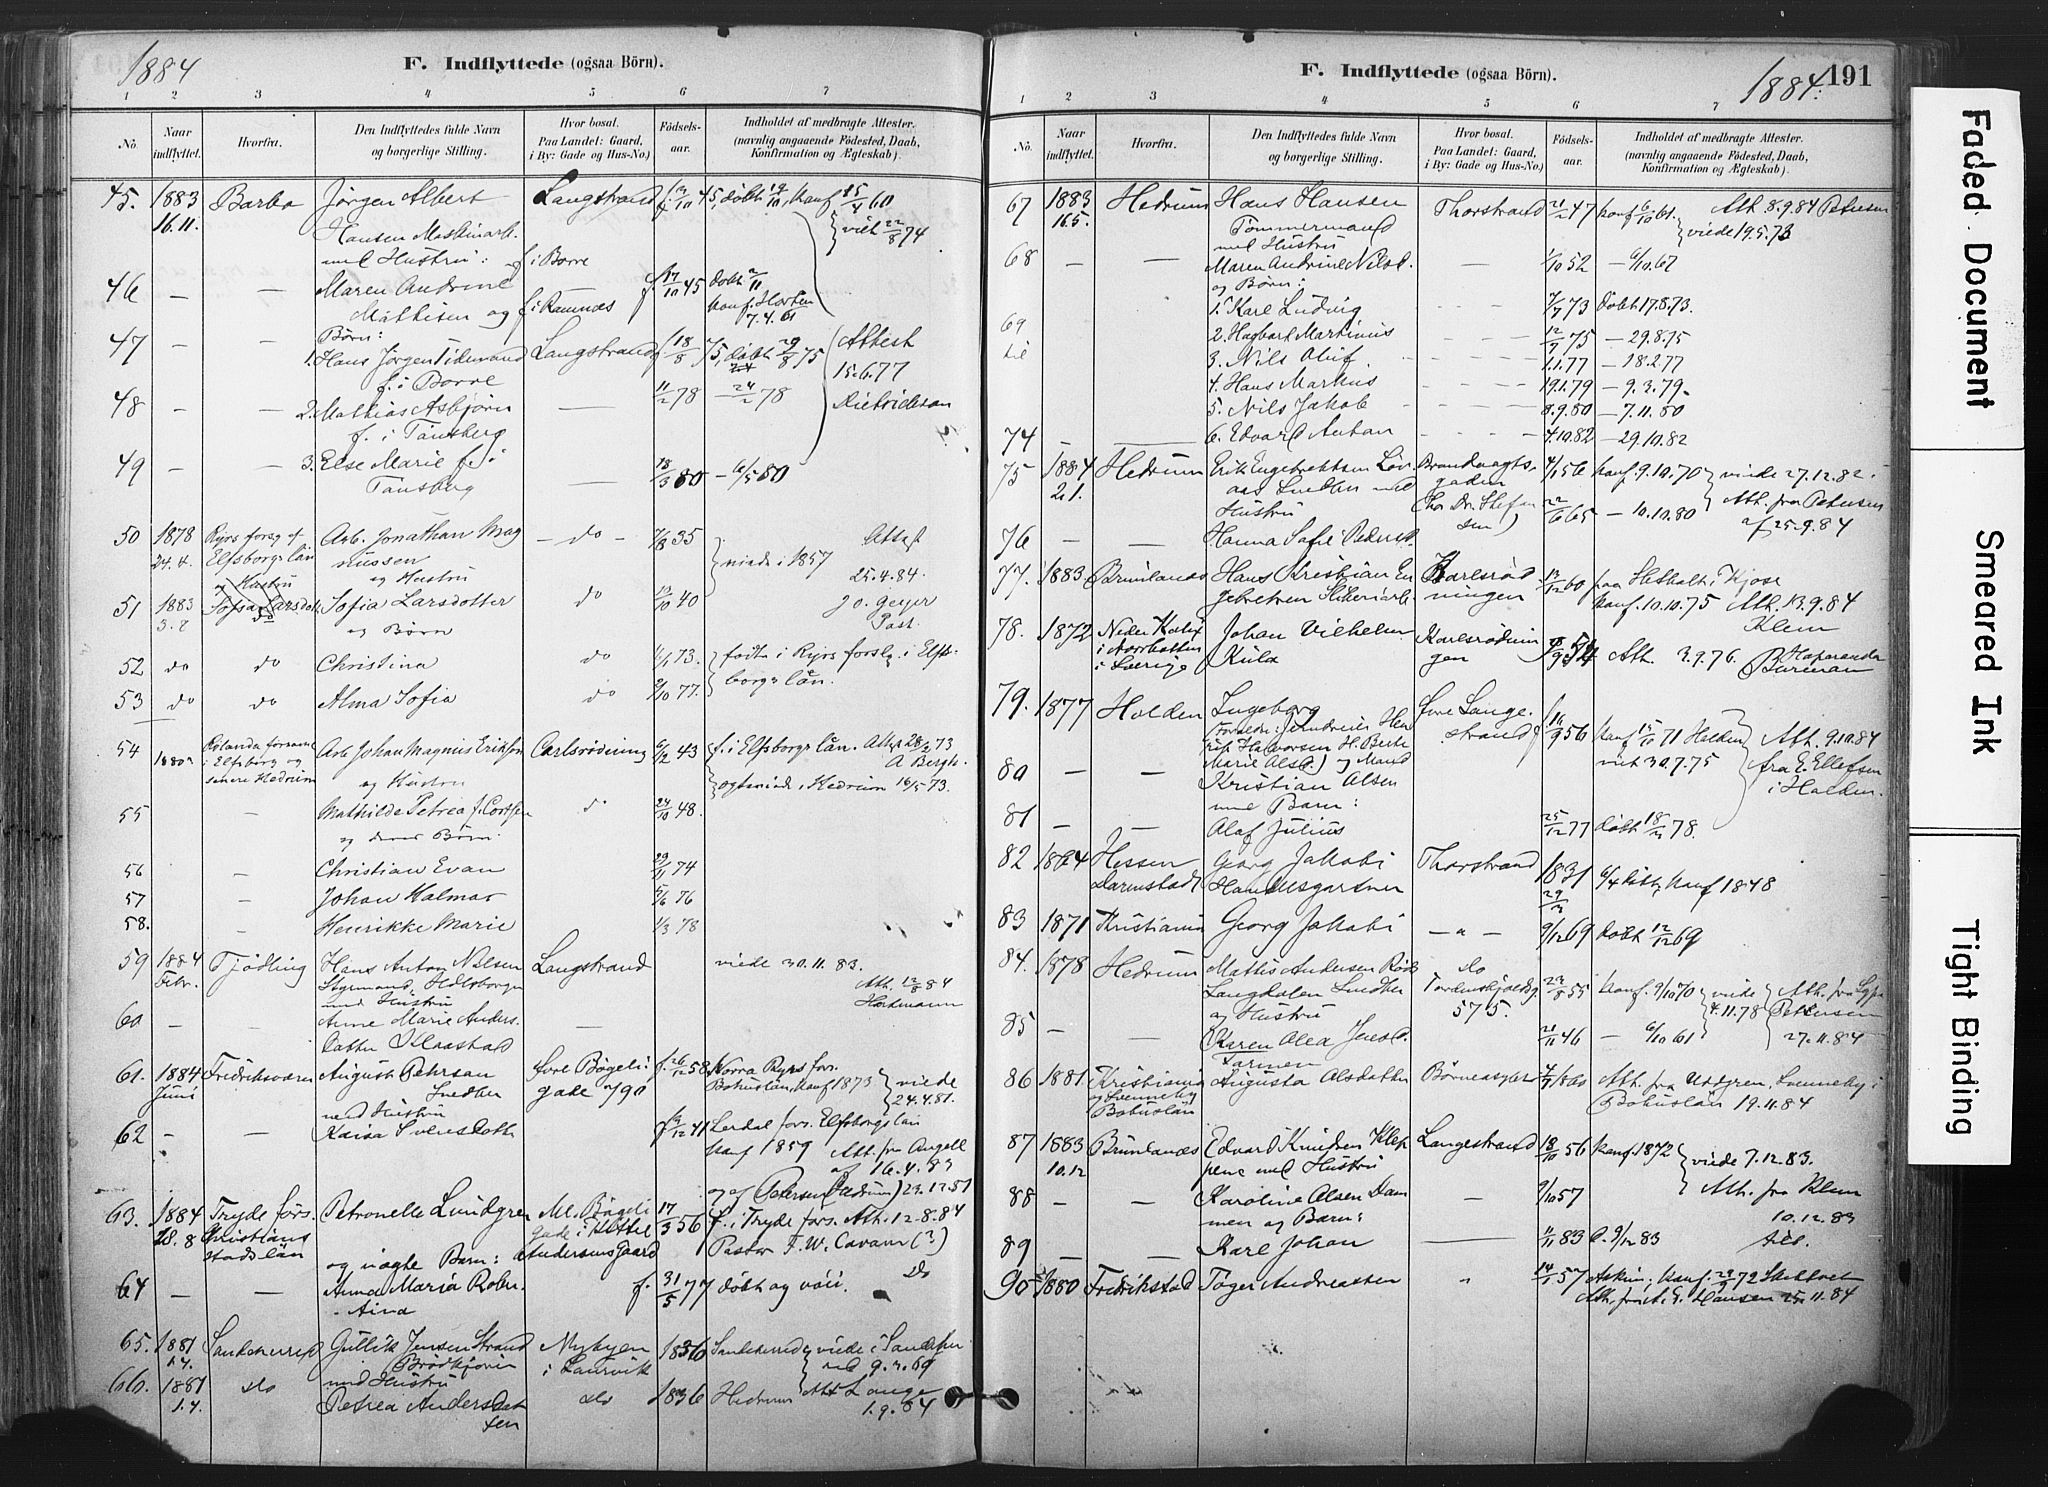 1884
F. Indflyttede (ogsaa Börn).
1 2 3 4 5 6 7
No.
Naar indflyttet.
Hvorfra.
Den Indflyttedes fulde Navn og borgerlige Stilling.
Hvor bosat. Paa Landet: Gaard, i By: Gade og Hus-No.)
Födsels-aar.
Indholdet af medbragte Attester. (navnlig angaaende Födested, Daab, Konfirmation og Ægteskab).
45. 1883 Barbo Jörgen Albert Langstrand 45, döbt konf 60
16.11. Hansen Maskinarb. viet 22/8 74
med Hustru: f. i Borre
46 — — Maren Andrine f. 17/10 45 döbt 2/11
Mathisen og f. i Ramnes konf. Horten
7.4.61
47 — — Börn:
1. Hans Jörgen Tidemand Langstrand 18/8 75, döbt 29/8 75 Attest
f. i Borre 15.6.77
48 — — 2. Mathias Asbjörn — 11/2 78 — 24/2 78
f. i Tönsberg
49 — — 3. Else Marie f. i 18/3 80 — 6/5 80
Tönsberg —
50 1878 Ryrs forsg af Arb. Jonathan Mag — do — 7/8 35 viede i 1857 Attest
24.4. Elfsborgs län nussen 25.4.84.
og Hustru og Hustru
51 1883 Sofia Larsdott Sofia Larsdotter do 40 Jo. Geijer
do og Börn Past.
52 do do Christina do 73. födte i Ryrs forslg. i Elfs-
53 do do Alma Sofia do 9/10 77. borgs län.
54 1880 Rölanda forsaml Arb Johan Magnus Erikson Carlsrödning 6/12 43 f. i Elfsborgs län. Att 28/2 73
i Elfsborg og A Bergh.
senere Hedrum og Hustru ogte viede i Hedrum 16/5 73.
55 — Mathilde Petrea f. Cortsen do 24/10 48.
og deres Börn:
56 — Christian Evan 29/11 74
57 — Johan Halmar 5/6 76
58. — Henrikke Marie 1/3 78
59 1884 Tjödling Hans Anton Nilsen Langstrand viede 30.11.83.
Febr. Styrmand, Att. 12/8 84
med Hustru Hartmann
60 — — Anne Marie Anders. —
Datter Klaastad
61. 1884 Fredriksværn August Pehrson Övre Bögeli f. 26/12 58 Norra Ryrs for.
Juni Snedker gade 790 Bohuslän, konf 1873 viede
med Hustru 24.4.81.
62 — — Kaisa Svensdotter f. 41 Lerdal fors. Elfsborgs län
konf 1859 Att. fra Angell
af 16.4.83
og af Petersen (Hedrum) 23.12.81
63. 1884 Tryde förs. Petronelle Lundgren Ml. Bögeli 17/3 56 f. i Tryde förs. Att. 12.8.84
18.8 Christians Gade i Kittel Pastor F. W. Cavam (?)
stads län og uægte Barn: Andersens Gaard
64 — — Anna Maria Robe. f. 31/5 77 döbt og vacc. do
Aina
65. 1881 Sandeherred Gullik Jensen Strand Nybyen 1836 Sandeherred viede i Sandeher
1.4. Brödkjörer i Laurvik red 9.3.69
66. 1881 do med Hustru do 1836 Hedrum Att Lange
1.4. Petrea Andersdat 1.9.84
F. Indflyttede (ogsaa Börn).
1884. 191
1 2 3 4 5 6 7
No.
Naar indflyttet.
Hvorfra.
Den Indflyttedes fulde Navn og borgerlige Stilling.
Hvor bosat. Paa Landet: Gaard, i By: Gade og Hus-No.)
Födsels-aar.
Indholdet af medbragte Attester. (navnlig angaaende Födested, Daab, Konfirmation og Ægteskab).
67 1883 Hedrum Hans Hansen Thorstrand 21/2 47 konf 6/10 61 Att. 8.9.84 Petersen
16.5. Tömmermand viede 19.5.73
med Hustru
68 — — Maren Andrine Nilsd. — 1/10 52 — 6/10.67
og Börn:
1. Karl Ludvig 7/7 73 döbt 17.8.73.
69 2. Hagbart Martinus 12/7 75 — 29.8.75
til 3. Nils Oluf 1.1.77 — 18.2.77
4. Hans Markus 19.1.79 — 9.3.79.
5. Nils Jakob 8.9.80 — 7.11.80
74 — — 6. Edvard Anton 4.10.82 — 29.10.82
75 1884 Hedrum Erik Engebrektsen Löv Brandvagts- 4/1 56 konf. 9.10.70 viede 27.12.82.
2.1. aas Snedker med gaden Att. fra Petersen
Hustru (hos Dr. Stefan 22/6 65 — 10.10.80 af 25.9.84
76 — — Hanna Sofie Peders. sen)
77. 1883 Brunlanæs Hans Kristian En Karlsröd 60 fra Hesholt i Kjose
gebretsen ningen konf. 10.10.75 Att. 13.9.84
Klem
78. 1872 Neder Kalix Johan Vilhelm Karlsrödnin 54 Att. 3.9.76. Haparanda
i Norrbotten Kula gen Burman
i Sverige
79. 1877 Holden Ingeborg Övre Lange- 56 konf 15/10 71 Holden Att. 9.10.84
strand viet 30.7.75 fra E. Ellefsen
i Holden.
Marie Alsd.) og Mand
80 — — Kristian Olsen
med Barn:
81 — — Olaf Julius 25/12 77 döbt 78.
82 1864 Hessen Georg Jakobi Thorstrand 1831 6/4 konf 1848
Darmstadt Handelsgartner 29/3
83 1871 Kristiania Georg Jakobi — " — 9/12 69 döbt 12/12 69
84. 1878 Hedrum Mattis Andersen Röd do 23/8 55 konf. 9/10 70 viede Att. fra Sgpr
Langdalen Snedker Tordenskjoldsg 4.11.78 Petersen
og Hustru 575. 27.11.84
85 — Karen Olea Jensd. 21/11 46 — 6/10 61
Farmen
86 1881 Kristiania Augusta Olsdatter Börneasylet 4/7 1860 Att. fra Uddgren, Svenneby i
og Svenneby Bohuslän 19.11.84
Bohuslän
87 1883 Brunlanæs Edvard Knudsen Klep Langestrand 18/10 56 konf. 1872 viede 7.12.83.
10.12 pene med Hustru Att. fra Klem
88 — — Karoline Olsen Dam — 9/10 57 10.12.83
men og Barn:
89 — — Karl Johan 11/11 83 d. 9/12 83
90 1880 Fredrikstad Töger Andreassen " 14/1 57 Askim; konf. 29/9 72
Att. fra A. E. Hansen 25.11.84
Faded Document
Smeared Ink
Tight Binding